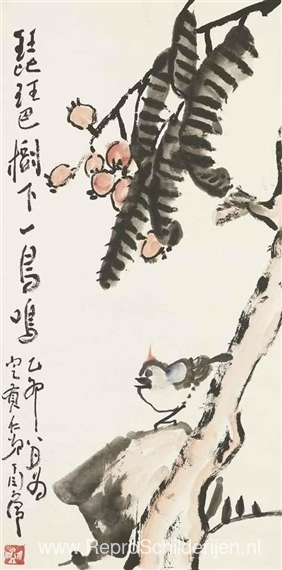 琵琶樹下一鳥鳴
乙卯八月為
仁弟丁衍庸
www.ReproSchilderijen.nl